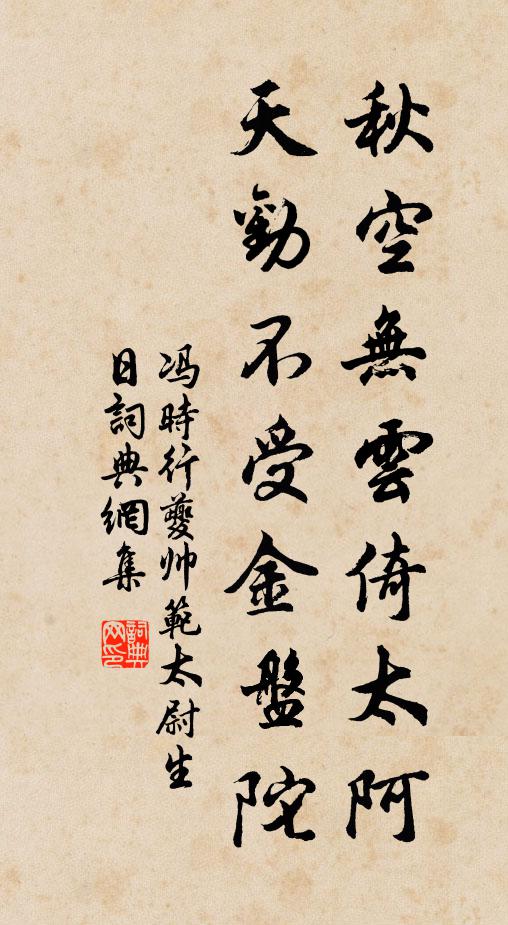 秋空無雲倚太阿
天勤不受金盤陀
冯時行夔帅範太尉生
日詞典網集
詞典
网印